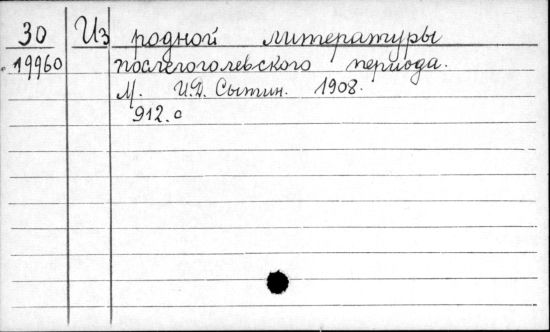 30 Из родной литературы
19960 послегоголевского периода.
М. И.Д. Сытин. 1908.
912.с